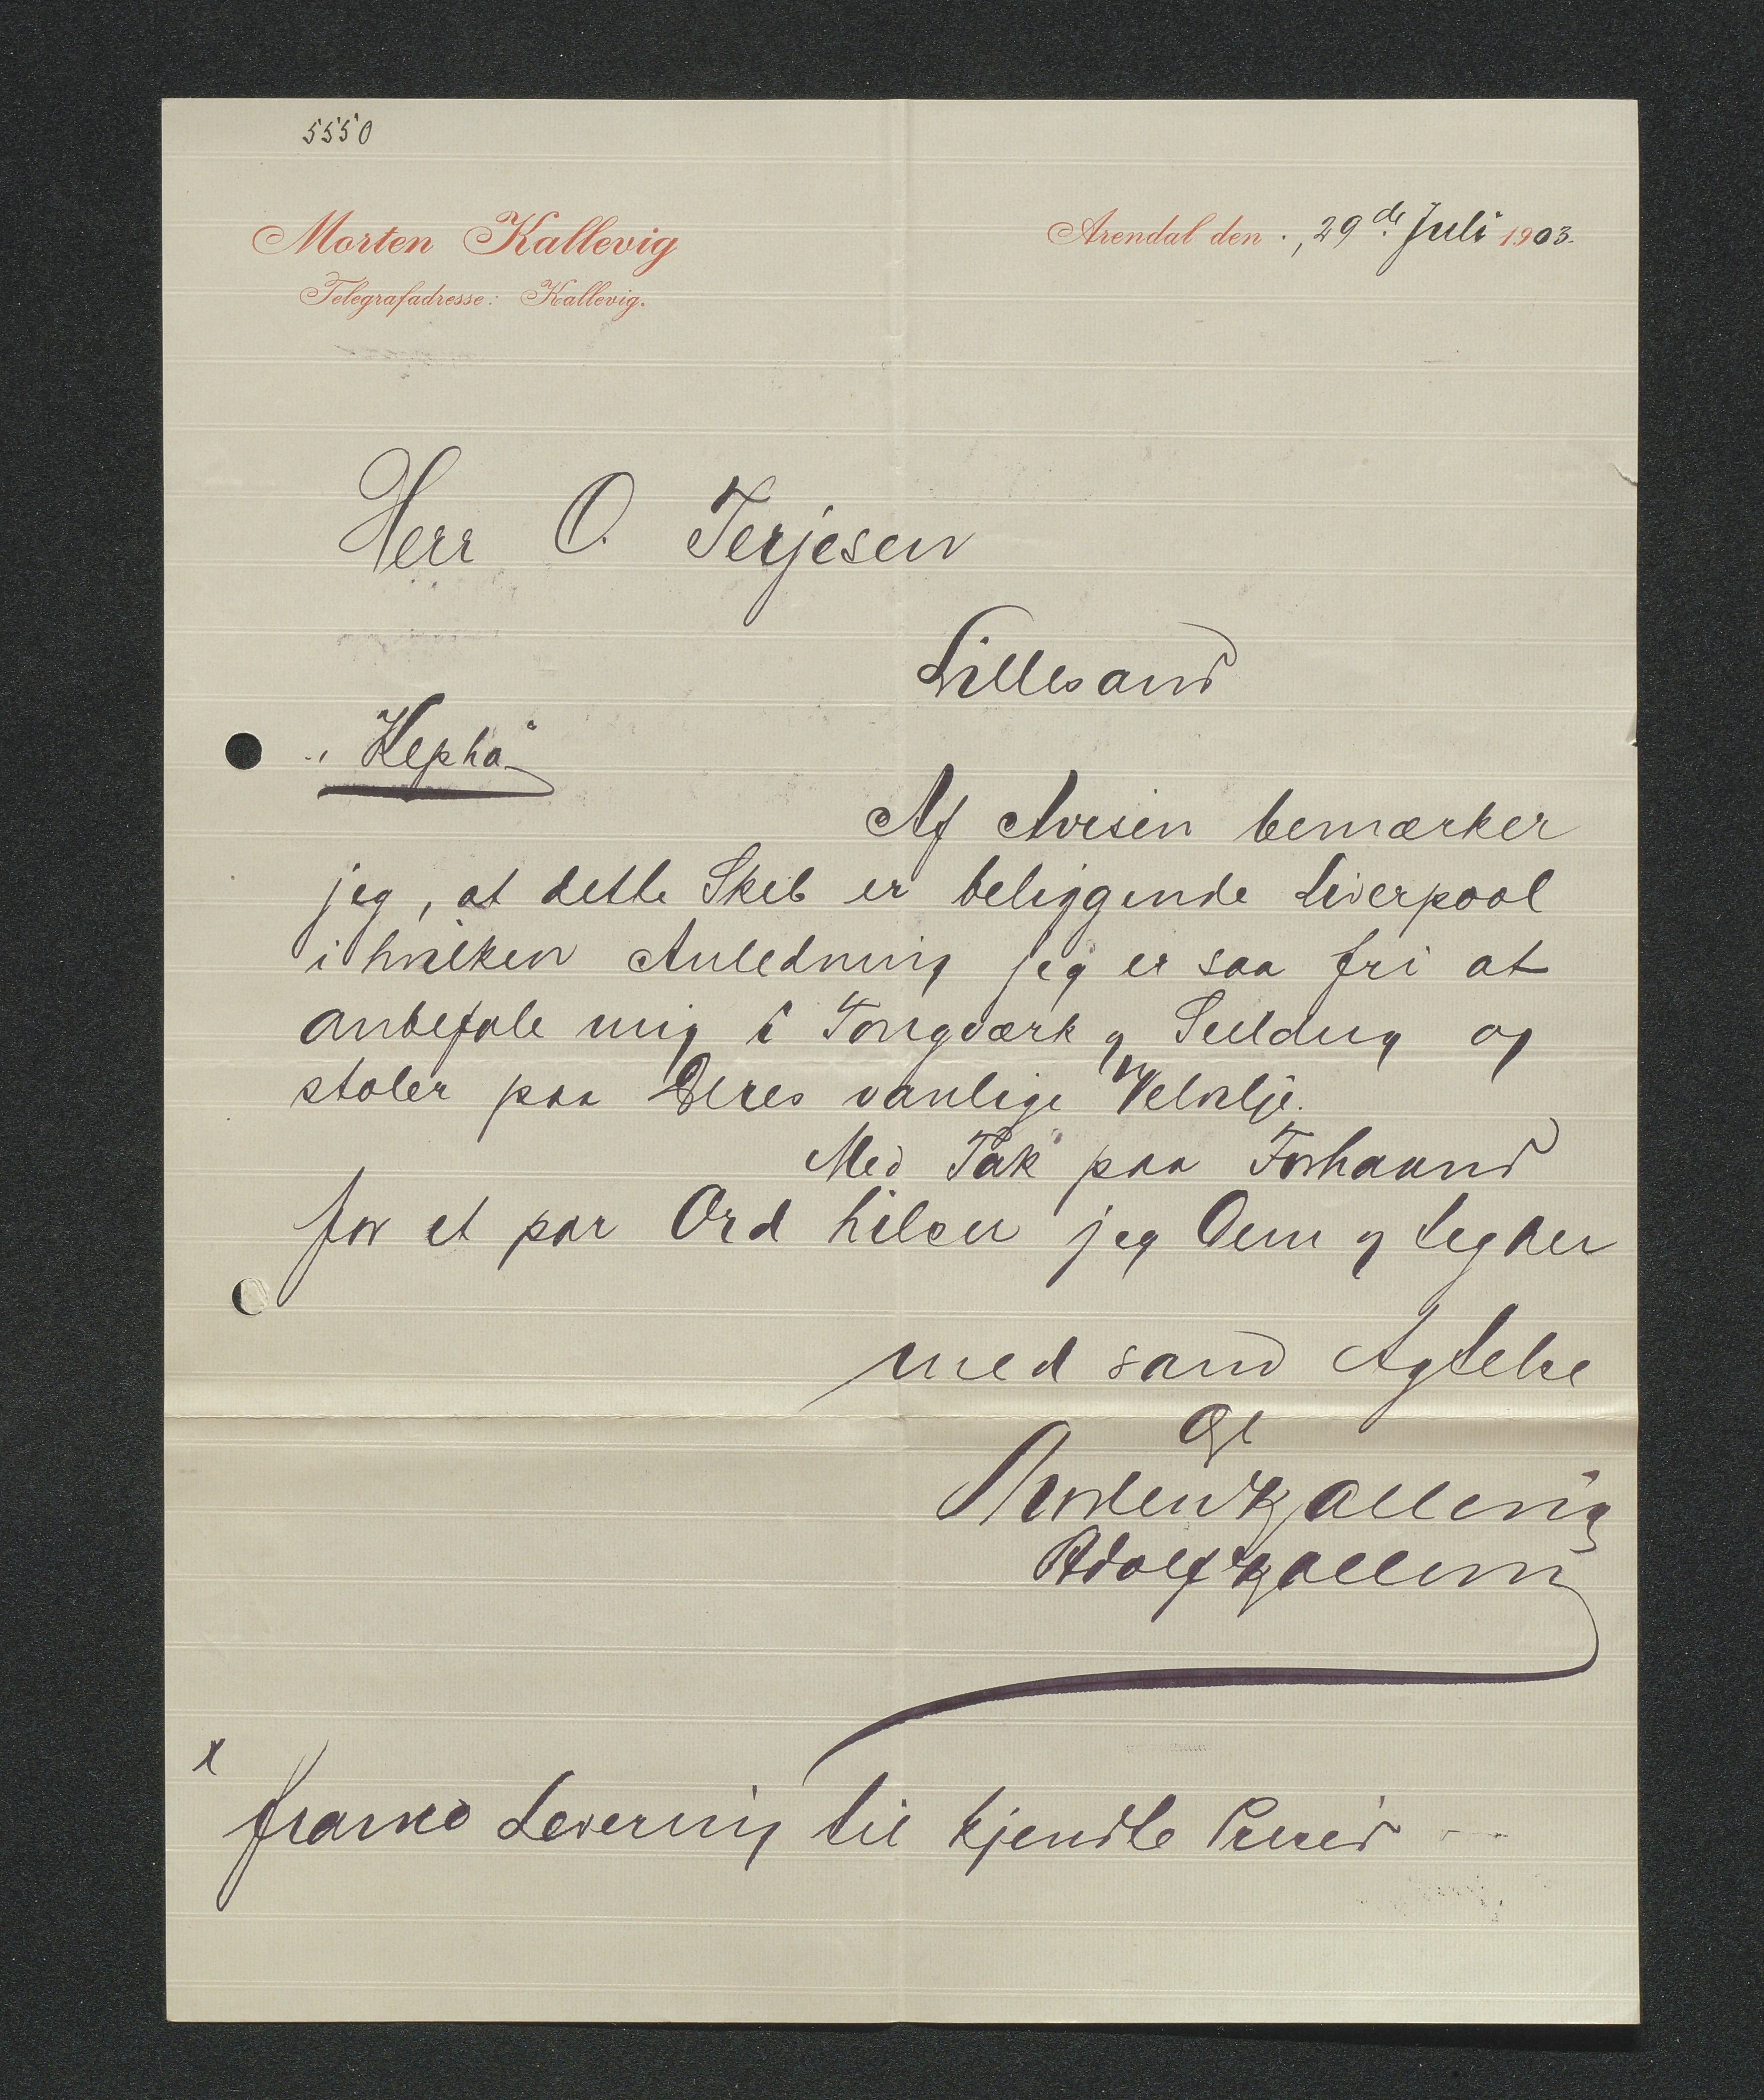 5550
Morten Kallevig
Telegrafadresse: Kallevig.
Arendal den 29de Juli 1903.
Herr O. Terjesen
Lillesand
"Hepha"
Af Avisen bemærker
jeg, at dette Skib er beliggende Liverpool
i hvilken Anledning jeg er saa fri at
anbefale mig i Tougværk og Seildug og
stoler paa Deres vanlige Velvilje.
Med Tak paa Forhaand
for et par Ord hilser jeg Dem og tegner
med sand Agtelse
Morten Kallevig
Adolf Kallevig
x
franko Levering til kjendte Priser